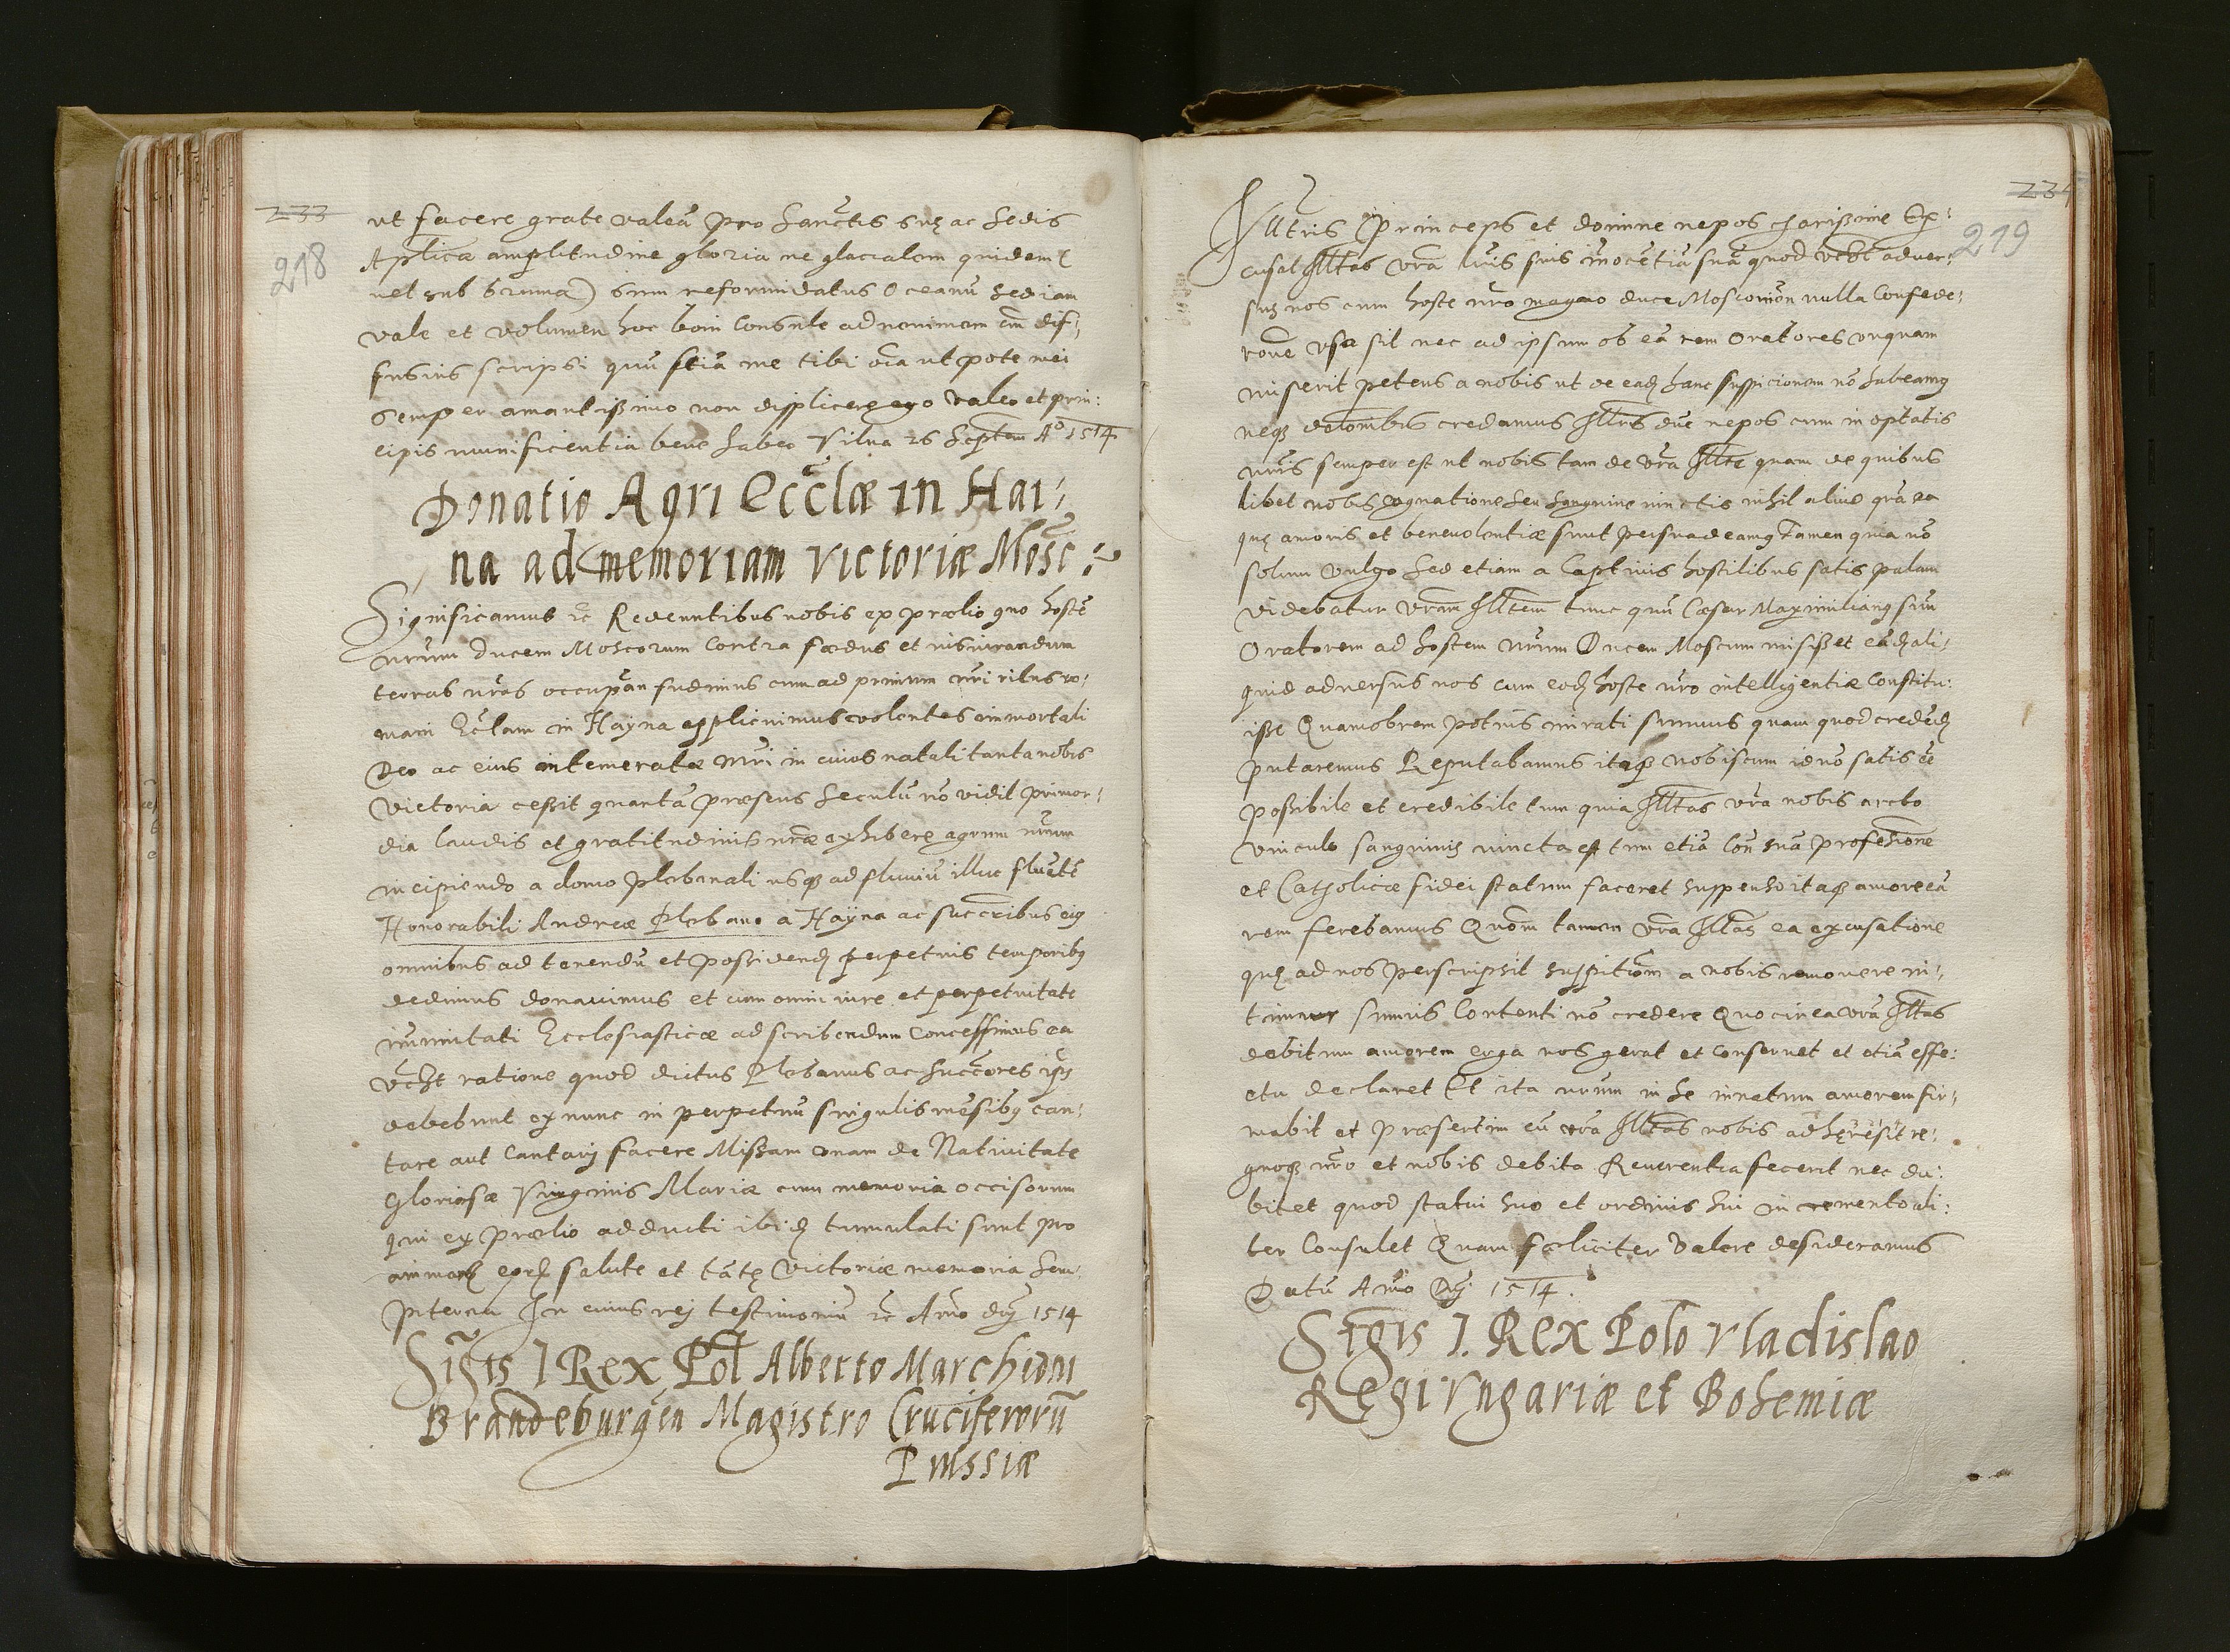 233
218
ut facere grate valeã pro Sanctis suę ac Sedis
Aplicæ amplitudine gloria ne glacialem quidem (
uel sub bruma) sim reformidatus Oceanũ Sed iam
vale et volumen hoc boni Consule ad neminem em̃ dif-
fusius scripsi quũ sciã me tibi oĩa ut pote mei
semper amantißimo non displicere ego valeo et prin:
cipis munificentia bene habeo Vilna 26 Septem Aº 1514
Donatio Agri Ecclæ in Hai-
na ad memoriam victoriæ Mosc:
Significamus &c Redeuntibus nobis ex prælio quo hostẽ
nrum Ducem Moscorum Contra fœdus et iusiurandum
terras nras occupan fudimus cum ad primum nri ritus ro-
mani Ecclam in Hayna applicuimus volentes immortali
Deo ac eius intemeratæ Mri in cuius natali tanta nobis
Victoria ceßit quantã præsens Seculũ nõ vidit primor-
dia laudis et gratitudinis nræ exhibere agrum nrum
incipiendo a domo Plebanali usq ad fluuiũ illuc fluẽtẽ
Honorabili Andreæ Plebano a Hayna ac succribus eiq
omnibus ad tenendũ et possidend perpetuis temporibq
dedimus donauimus et cum omni iure et perpetuitate
im̃unitati Ecclesiasticæ adscribendum Concessimus ea
vcht ratione quod dictus Plebanus ac Succores ipi
debebunt ex nunc in perpetuũ singulis mẽsibq can-
tare aut Cantari facere Missam unam de Natiuitate
Gloriosæ Virginis Mariæ cum memoria occisorum
qui ex prælio adducti ibid tumulati sunt pro
animarũ eorũ salute et tãtę Victoriæ memoria Sem-
piterna In cuius rej testimoniũ &c Anno dnj 1514
Sigis I Rex Pol Alberto Marchioni
Brandeburgen Magistro Cruciferorũ
Prussiæ
234
219
Illtris Princeps et domine nepos charißime Ex:
cusat Illtas vra lris suis iñocẽtiã suã quod vcht aduer-
sus nos cum hoste nro magno duce Moscouien nulla Confede-
rone vsa sit nec ad ipsum ob eã rem Oratores vnquam
miserit petens a nobis ut de eadẽ hanc suspicionem nõ habeamq
neq delatoribus credamus Illtris dne nepos cum in optatis
nris semper est ut nobis tam de vra Illte quam de quibus
libet nobis cognatione seu Sanguine iunctis nihil aliud quã ea
quę amoris et beneuolentiæ sunt persuadeamq Tamen quia nõ
solum vulgo Sed etiam a Captiuis hostilibus satis palam
videbatur vram Illtem tunc quũ Cæsar Maximilianq suũ
Oratorem ad hostem nrum Ducem Moscum misißet eadẽ ali-
quid aduersus nos cum eodẽ hoste nro intelligentiæ Constitu-
iße Quamobrem potius mirati sumus quam quod credend
putaremus Reputabamus itaq nobiscum id nõ satis ẽe
possibile et credibile tum quia Illtas vra nobis arcto
vinculo sanguinis iuncta est tum etiã Con suã profesione
et Catholicæ fidei statum faceret suspenso itaq amore eã
rem ferebamus Quom tamen vra Illtas ea excusatione
quę ad nos perscripsit suspitiom a nobis remouere ni-
timur sumus Contenti nõ credere Quocirca vra Illtas
debitum amorem erga nos gerat et Conseruet et etiã effe:
ctu declaret Et ita nrum in se innatum amorem fir-
mabit et præsertim cũ vra Illtas nobis adhęresit re-
gnoq nro et nobis debita Reuerentia fecerit nec du:
bitet quod statui suo et ordinis sui in cremento ali:
ter Consulet Quam fœliciter valere desideramus
Datũ Anno Dnj 1514.
Sigis I. Rex Polo Vladislao
Regi Vngariæ et Bohemiæ